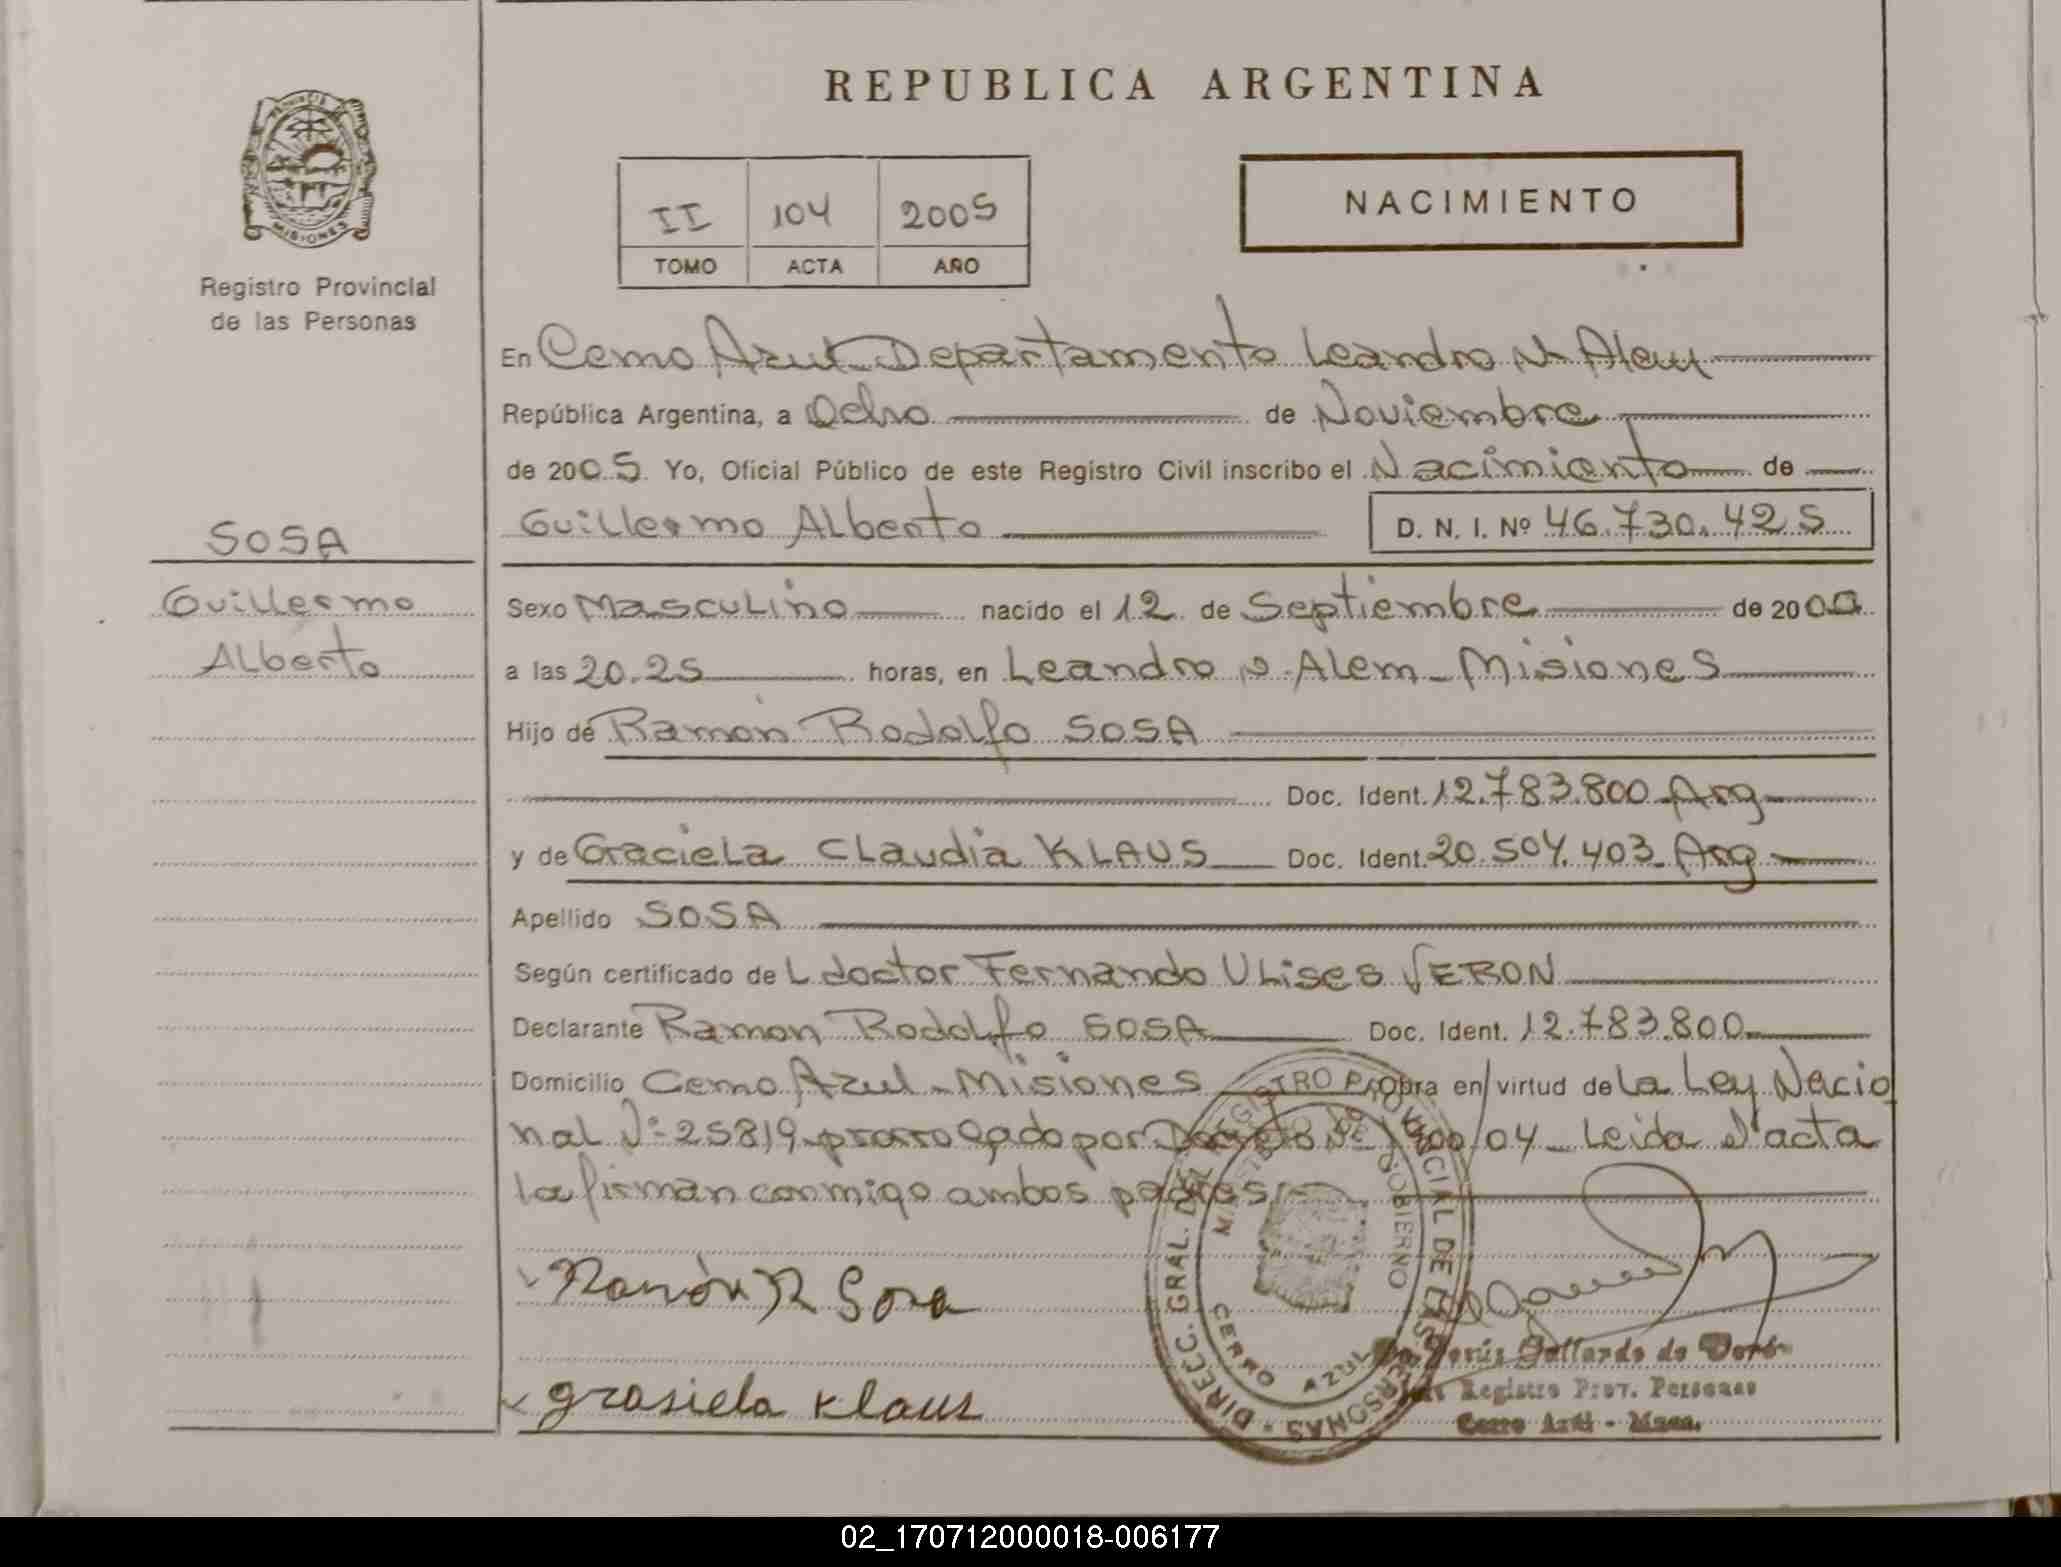 REPUBLICA ARGENTINA
PROVINCIA
MISIONES
Registro Provincial
de las Personas
II 104 2005
TOMO ACTA AÑO
NACIMIENTO
En Cerro Azul - Departamento Leandro N. Alem
República Argentina, a Ocho de Noviembre
de 2005 Yo, Oficial Público de este Registro Civil inscribo el Nacimiento de
Guillermo Alberto D. N. I. Nº 46.730.425
SOSA
Guillermo
Alberto
Sexo Masculino nacido el 12 de Septiembre de 2000
a las 20.25 horas, en Leandro N. Alem - Misiones
Hijo de Ramón Rodolfo SOSA
Doc. Ident. 12.783.800 Arg
y de Graciela Claudia KLAUS Doc. Ident. 20.504.403 Arg
Apellido SOSA
Según certificado de L doctor Fernando Ulises VERON
Declarante Ramon Rodolfo SOSA Doc. Ident. 12.783.800
Domicilio Cerro Azul - Misiones obra en virtud de La Ley Nacio
nal Nº 25819 prorrogado por Decreto Nº /04 - Leida el acta
la firman conmigo ambos padres
Ramón R Sosa
grasiela klaus
DIRECC. GRAL. DEL REGISTRO PROVINCIAL DE LAS PERSONAS
GOBIERNO
CERRO AZUL
Jesús Gallardo de
Registro Prov. Personas
Cerro Azul - Mnes.
02_170712000018-006177